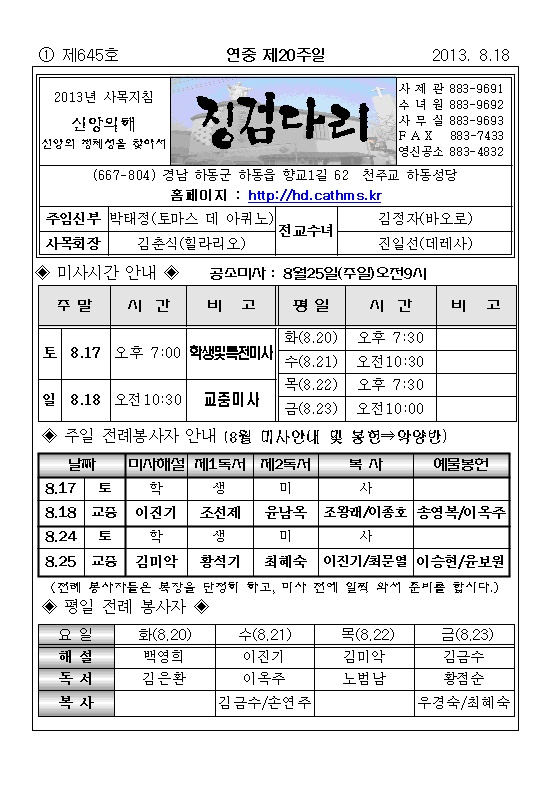 ① 제645호 연중 제20주일 2013. 8.18
2013년 사목지침
신앙의해
신앙의 정체성을 찾아서
징검다리
사 제 관 883-9691
수 녀 원 883-9692
사 무 실 883-9693
F A X 883-7433
영신공소 883-4832
(667-804) 경남 하동군 하동읍 향교1길 62 천주교 하동성당
홈페이지 : http://hd.cathms.kr
주임신부 박태정(토마스 데 아퀴노) 전교수녀 김정자(바오로)
사목회장 김춘식(힐라리오) 진일선(데레사)
◈ 미사시간 안내 ◈ 공소미사 : 8월25일(주일)오전9시
주 말 시 간 비 고 평 일 시 간 비 고
토 8.17 오후 7:00 학생및특전미사 화(8.20) 오후 7:30
수(8.21) 오전10:30
일 8.18 오전10:30 교중미사 목(8.22) 오후 7:30
금(8.23) 오전10:00
◈ 주일 전례봉사자 안내 (8월 미사안내 및 봉헌⇒악양반)
날짜 미사해설 제1독서 제2독서 복 사 예물봉헌
8.17 토 학 생 미 사
8.18 교중 이진기 조선제 윤남옥 조왕래/이종호 송영복/이옥주
8.24 토 학 생 미 사
8.25 교중 김미악 황석기 최혜숙 이진기/최문열 이승현/윤보원
(전례 봉사자들은 복장을 단정히 하고, 미사 전에 일찍 와서 준비를 합시다.)
◈ 평일 전례 봉사자 ◈
요 일 화(8.20) 수(8.21) 목(8.22) 금(8.23)
해 설 백영희 이진기 김미악 김금수
독 서 김은환 이옥주 노범남 황점순
복 사 김금수/손연주 우경숙/최혜숙